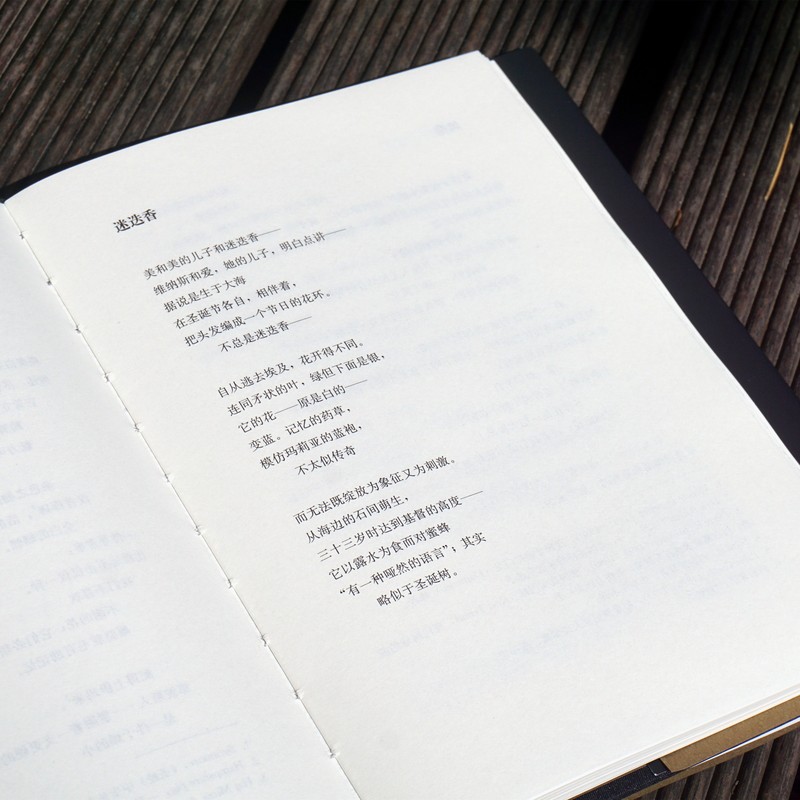 迷迭香
美和美的儿子和迷迭香——
维纳斯和爱，她的儿子，明白点讲——
据说是生于大海
在圣诞节各自，相伴着，
把头发编成一个节日的花环。
不总是迷迭香——
自从逃去埃及，花开得不同。
连同矛状的叶，绿但下面是银，
它的花——原是白的——
变蓝。记忆的药草，
模仿玛莉亚的蓝袍，
不太似传奇
而无法既绽放为象征又为刺激。
从海边的石间萌生，
三十三岁时达到基督的高度——
它以露水为食而对蜜蜂
“有一种哑然的语言”；其实
略似于圣诞树。